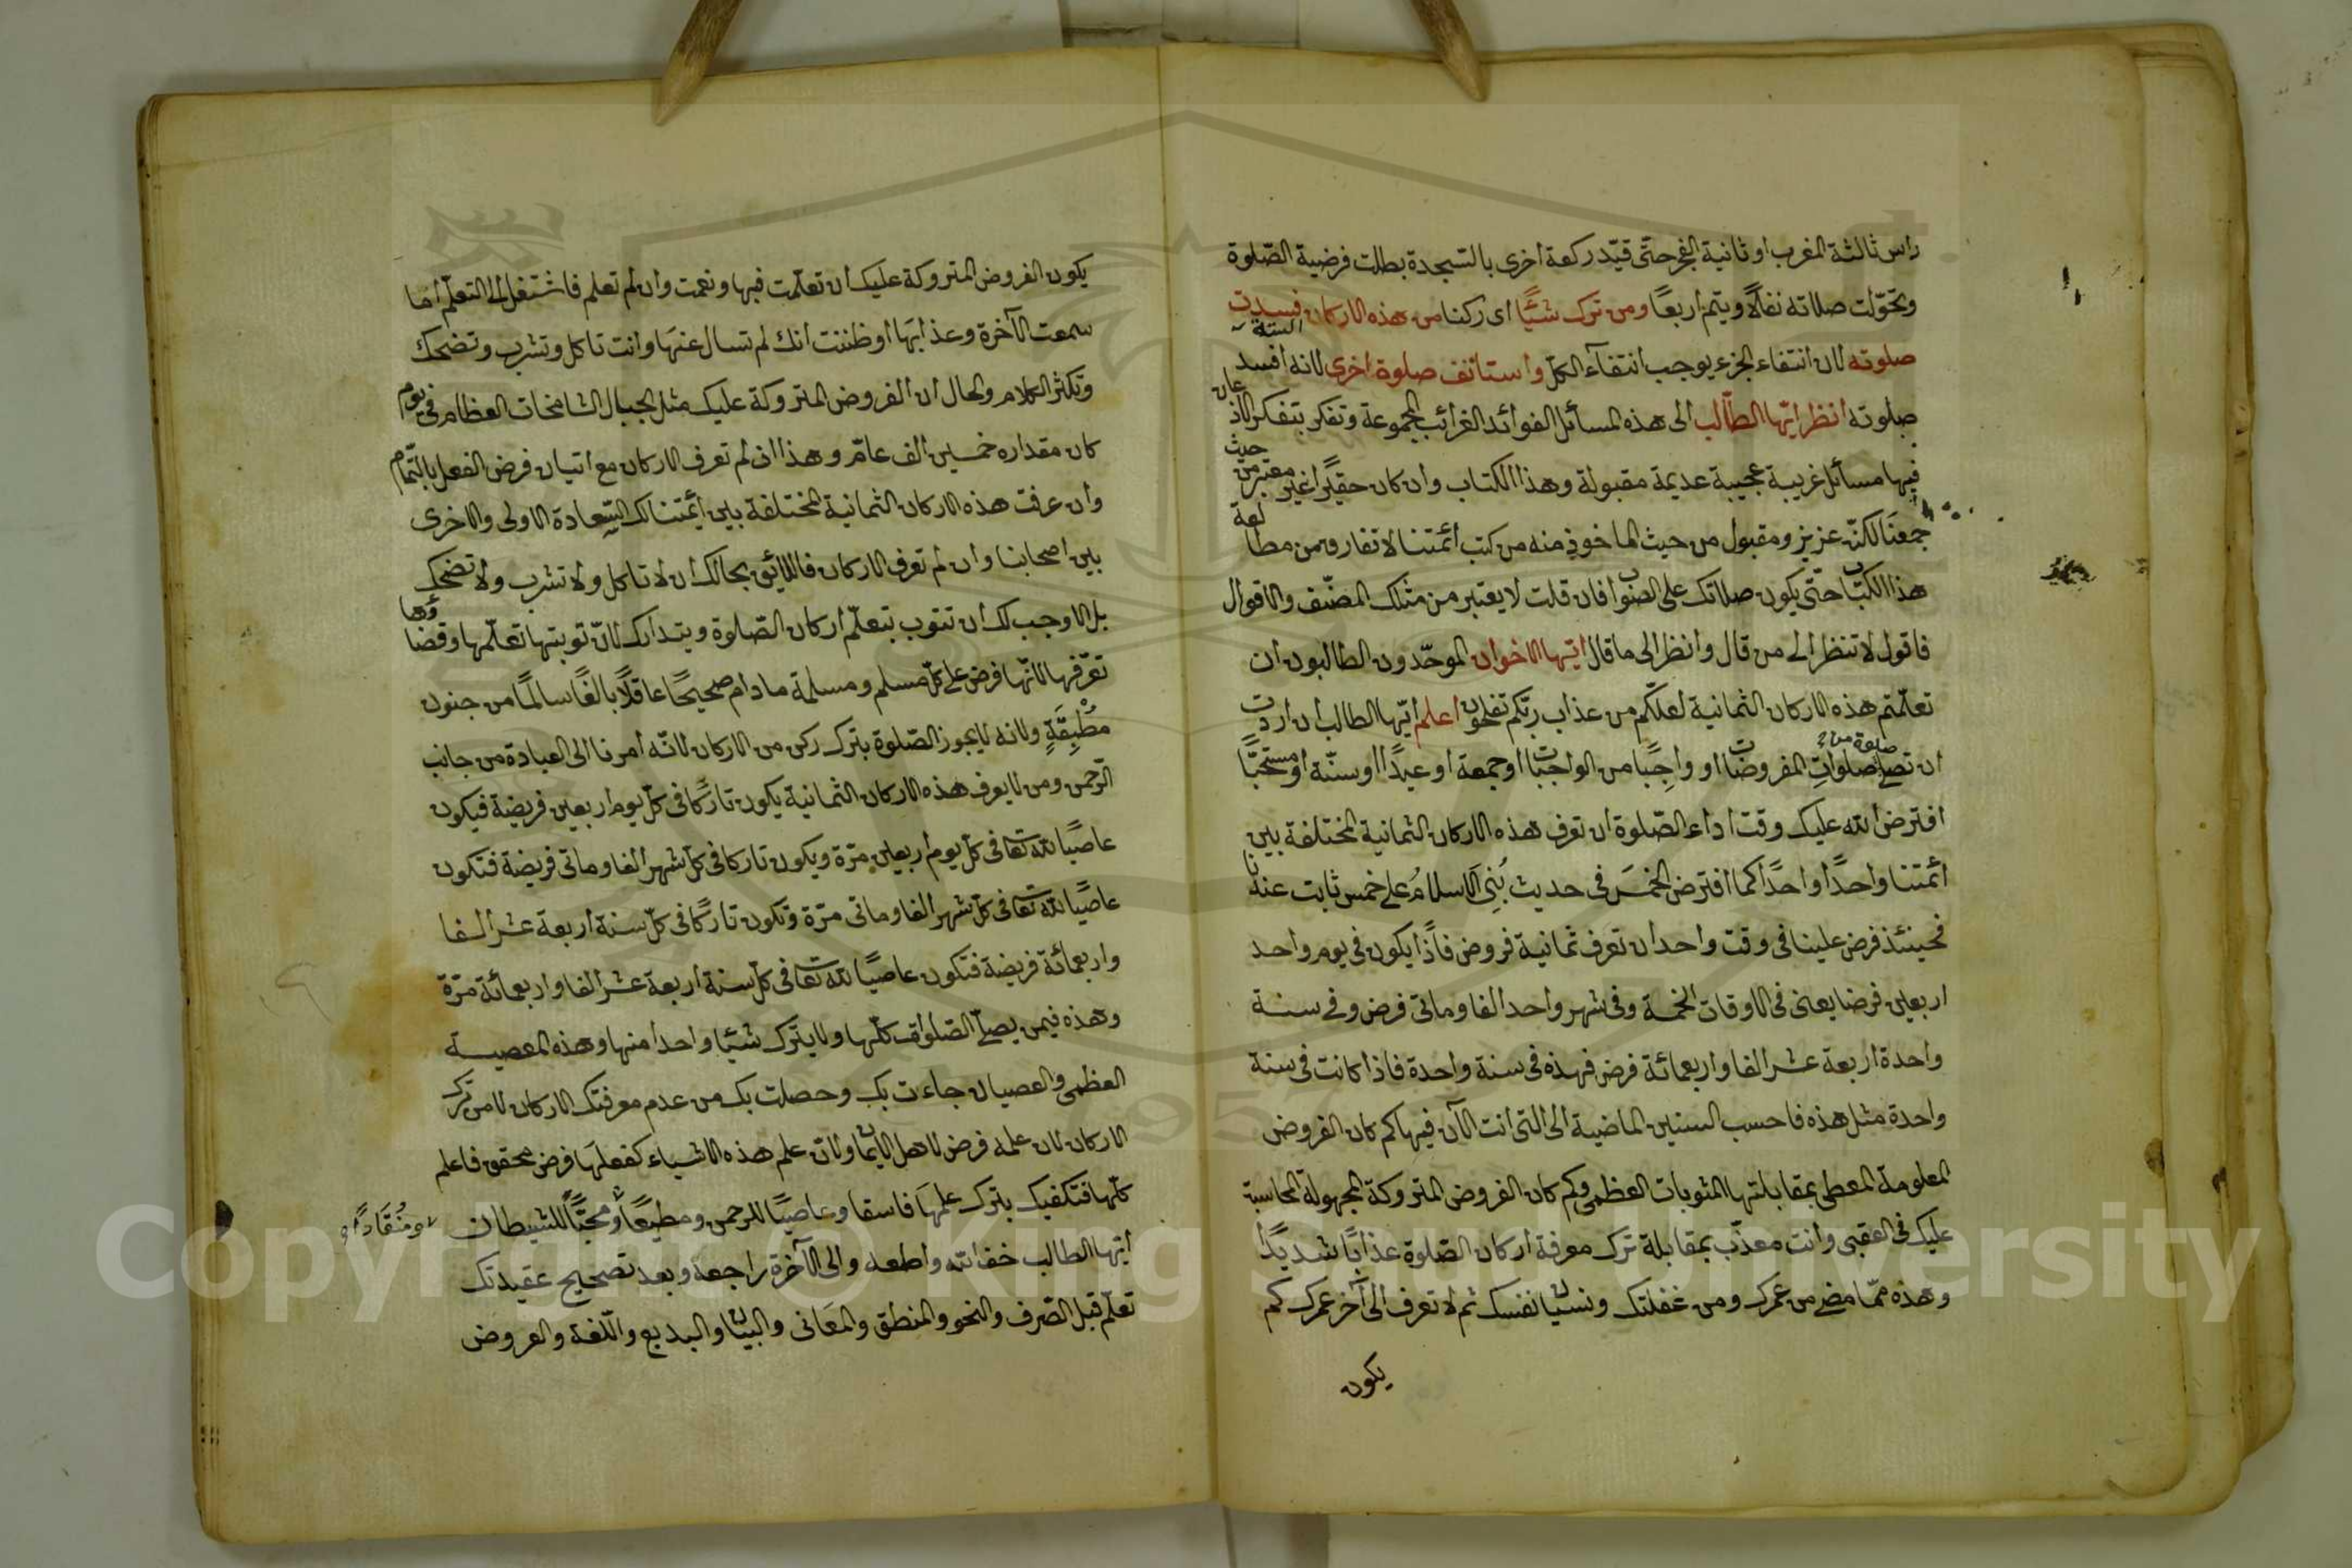 راس ثالثة المغرب او ثانية الفجر حتّى قيّد ركعة اخرى بالسّجدة بطلت فرضية الصّلوة
وتحوّلت صلاته نفلاً ويتم اربعاً ومن ترك شيئًا اى ركنا من هذه الاركان الستة فسدت
صلوته لان انتفاء الجزء يوجب انتفآء الكلّ واستانف صلوة اخرى لانه افسد
صلوته انظر ايّها الطّالب الى هذه المسائل الفوائد الغرائب المجموعة وتفكر بتفكر الاذعان
فيها مسائل غريبة عجيبة عديمة مقبولة وهذا الكتاب وان كان حقيرًا غير معتبر من حيث
جمعنَا لكنّه عزيز ومقبول من حيث الماخوذ منه من كتب ائمّتنا لا تفارق من مطالعة
هذا الكتاب حتّى يكون صلاتك على الصّواب فان قلت لا يعتبر من مثلك المصنّف والاقوال
فاقول لا تنظر الى من قال وانظر الى ما قال ايّها الاخوان الموحّدون الطالبون ان
تعلّمتم هذه الاركان الثمانية لعلّكم من عذاب ربّكم تفلحون اعلم ايّها الطالب ان اردت
ان تصلى صلوة من صلوات المفروضات او واجبًا من الواجبات او جمعة او عيدًا او سنّة او مستحبًّا
افترض الله عليك وقت اداء الصّلوة ان تعرف هذه الاركان الثمانية المختلفة بين
ائمّتنا واحدًا واحدًا كما افترض الخمسَ فى حديث بُنِىَ الاسلامُ على خمس ثابت عندنا
فحينئذ فرض علينا فى وقت واحد ان تعرف ثمانية فروض فاذًا يكون فى يوم واحد
اربعين فرضا يعنى فى الاوقات الخمسة وفى شهر واحد الفا وماتى فرض وفى سنة
واحدة اربعة عشر الفا واربعمائة فرض فهذه فى سنة واحدة فاذا كانت فى سنة
واحدة مثل هذه فاحسب السنين الماضية الى التى انت الآن فيها كم كان الفروض
المعلومة المعطى بمقابلتها المثوبات العظمى وكم كان الفروض المتروكة المجهولة المحاسبة
عليك فى العقبى وانت معذّب بمقابلة ترك معرفة اركان الصّلوة عذابًا شديدًا
وهذه ممّا مضى من عمرك ومن غفلتك ونسيان نفسك ثم لا تعرف الى آخر عمرك كم
يكون
يكون الفروض المتروكة عليك ان تعلّمت فبها ونعمت وان لم تعلم فاشتغل الى التعلّم اما
سمعت الآخرة وعذابَها او ظننت انك لم تسال عنهَا وانت تاكل وتشرب وتضحك
وتكثر الكلام والحال ان الفروض المتروكة عليك مثل الجبال الشامخات العظام فى يوم
كان مقداره خمسين الف عام وهذا ان لم تعرف الاركان مع اتيان فرض الفعل بالتّمام
وان عرفت هذه الاركان الثمانية المختلفة بين ائمّتنا لك السّعادة الاولى والاخرى
بين اصحابنا وان لم تعرف الاركان فاللائق بحالك ان لا تاكل ولا تشرب ولا تضحك
بل الاوجب لك ان تتوب بتعلّم اركان الصّلوة ويتدارك لانّ توبتها تعلّمها وقضاؤها
تعرّفها لانّها فرض على كلّ مسلم ومسلمة ما دام صحيحًا عاقلًا بالغًا سالمًا من جنون
مُطْبِقَةٍ ولانه لا يجوز الصّلوة بترك ركن من الاركان لانّه امرنا الى العبادة من جانب
الرّحمن ومن لا يعرف هذه الاركان الثمانية يكون تاركًا فى كلّ يوم اربعين فريضة فيكون
عاصيًا لله تعا فى كلّ يوم اربعين مرّة ويكون تاركا فى كلّ شهر الفا وماتى فريضة فتكون
عاصيًا لله تعا فى كلّ شهر الفا وماتى مرّة وتكون تاركًا فى كلّ سنة اربعة عشر الفا
واربعمائة فريضة فتكون عاصيًا لله تعا فى كلّ سنة اربعة عشر الفا واربعمائة مرّة
وهذه فيمن يصلّى الصّلوات كلّها ولا يترك شيئا واحدا منها وهذه المعصية
العظمى والعصيان جاءت بك وحصلت بك من عدم معرفتك الاركان لا من ترك
الاركان لان علمه فرض لاهل الايمان ولانّ علم هذه الاشياء كفعلهَا فرض محقق فاعلم
كلّها فتكفيك بترك علمهَا فاسقا وعاصيًا للرحمن ومطيعًا ومحبًّا للشيطان
ومُنْقَادًا
ايّها الطالب خف الله واطعه والى الآخرة راجعة وبعد تصحيح عقيدتك
تعلّم قبل الصّرف والنحو والمنطق والمعَانى والبيان والبديع واللّغة والعروض
Copyright © King Saud University
1957